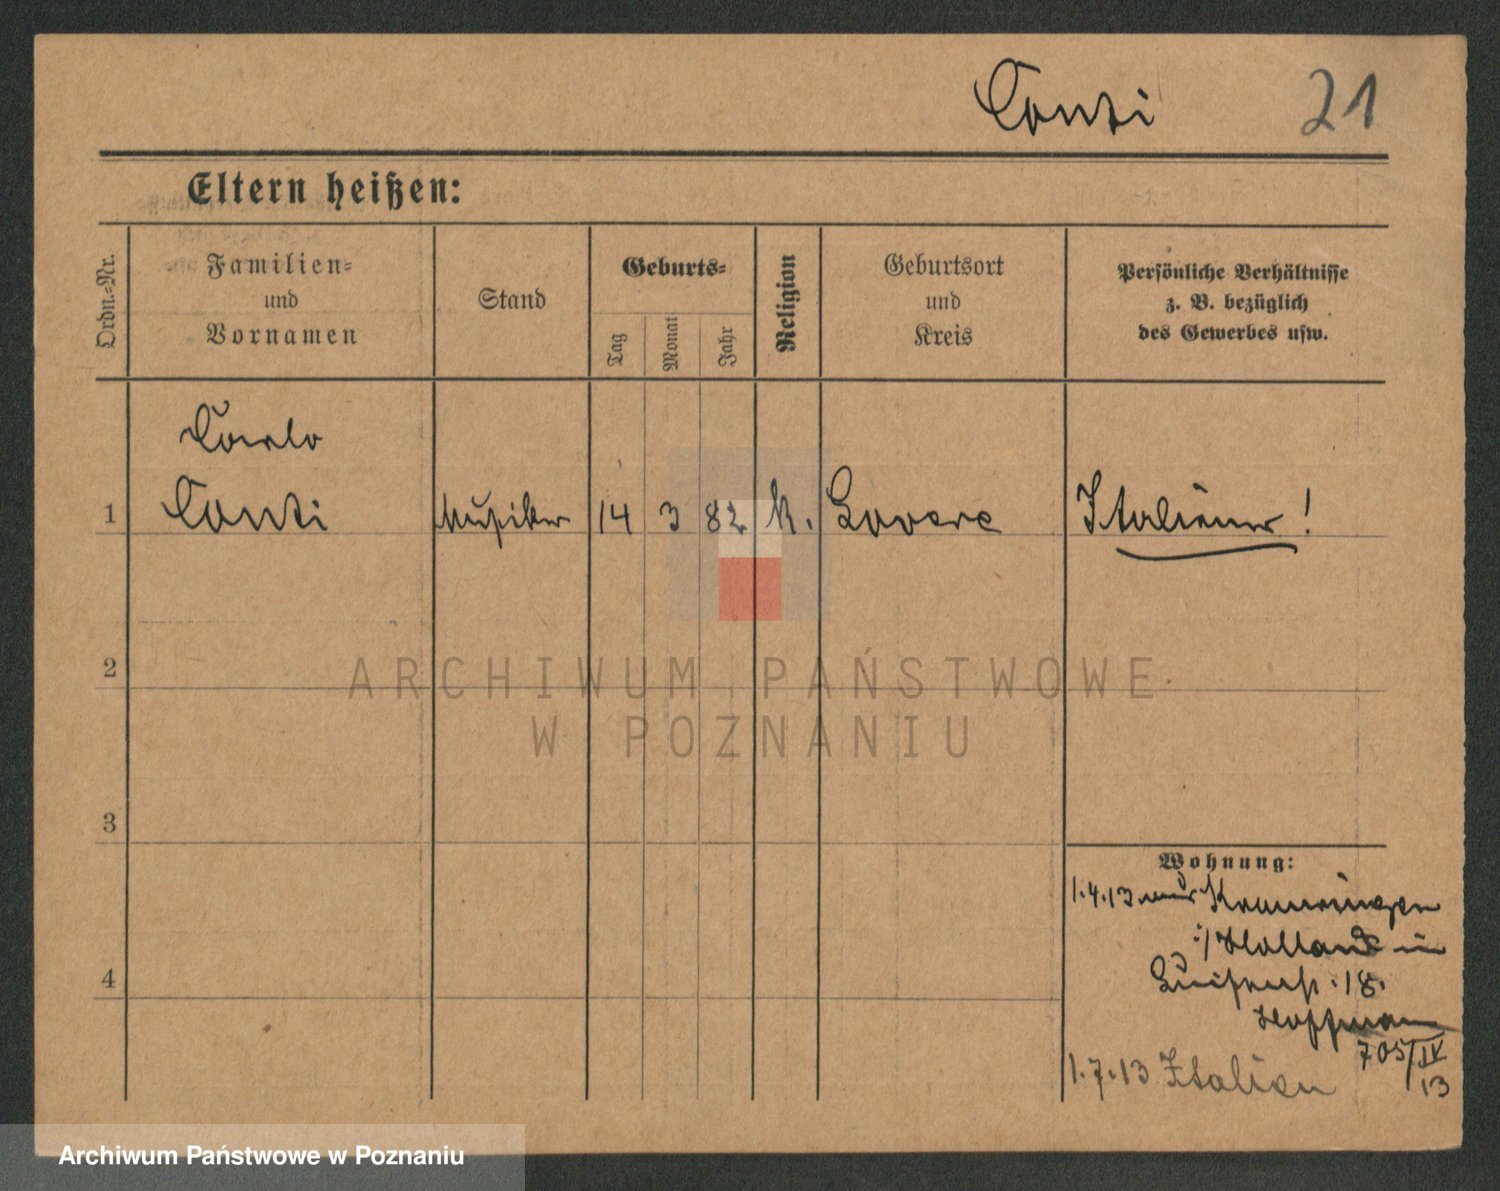 Conti 21
Eltern heißen:
Ordn.-Nr.
Familien-
und
Vornamen
Stand
Geburts-
Tag
Monat
Jahr
Religion
Geburtsort
und
Kreis
Persönliche Verhältnisse
z. B. bezüglich
des Gewerbes usw.
Carlo
1 Conti Musiker 14 3 82 k. Lovere Italiener!
2
3
4
Wohnung:
1.4.13 aus
i/Holland in
Luisenstr. 18.
Hoffmann
705/IV
13
1.7.13 Italien
ARCHIWUM PAŃSTWOWE
W POZNANIU
Archiwum Państwowe w Poznaniu